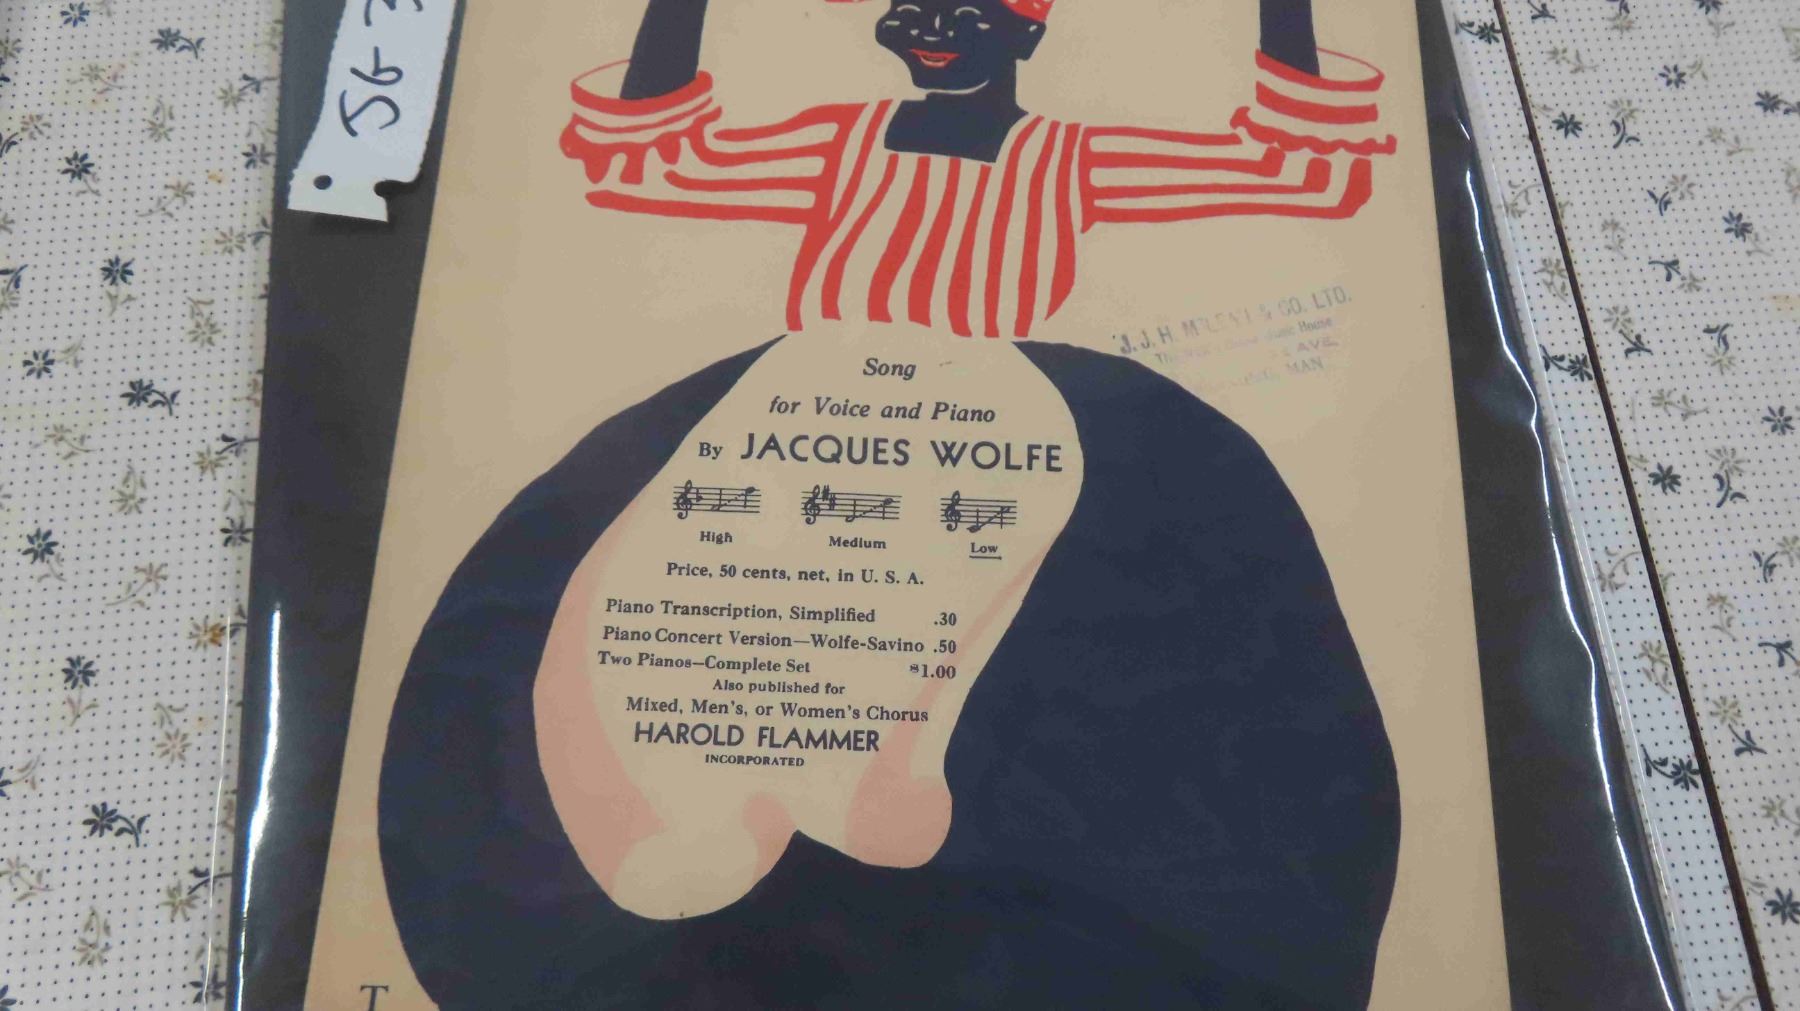 Song
for Voice and Piano
By JACQUES WOLFE
High Medium Low
Price, 50 cents, net, in U. S. A.
Piano Transcription, Simplified .30
Piano Concert Version—Wolfe-Savino .50
Two Pianos—Complete Set $1.00
Also published for
Mixed, Men's, or Women's Chorus
HAROLD FLAMMER
INCORPORATED
J. J. H. & CO. LTD.
House
AVE.
MAN
T